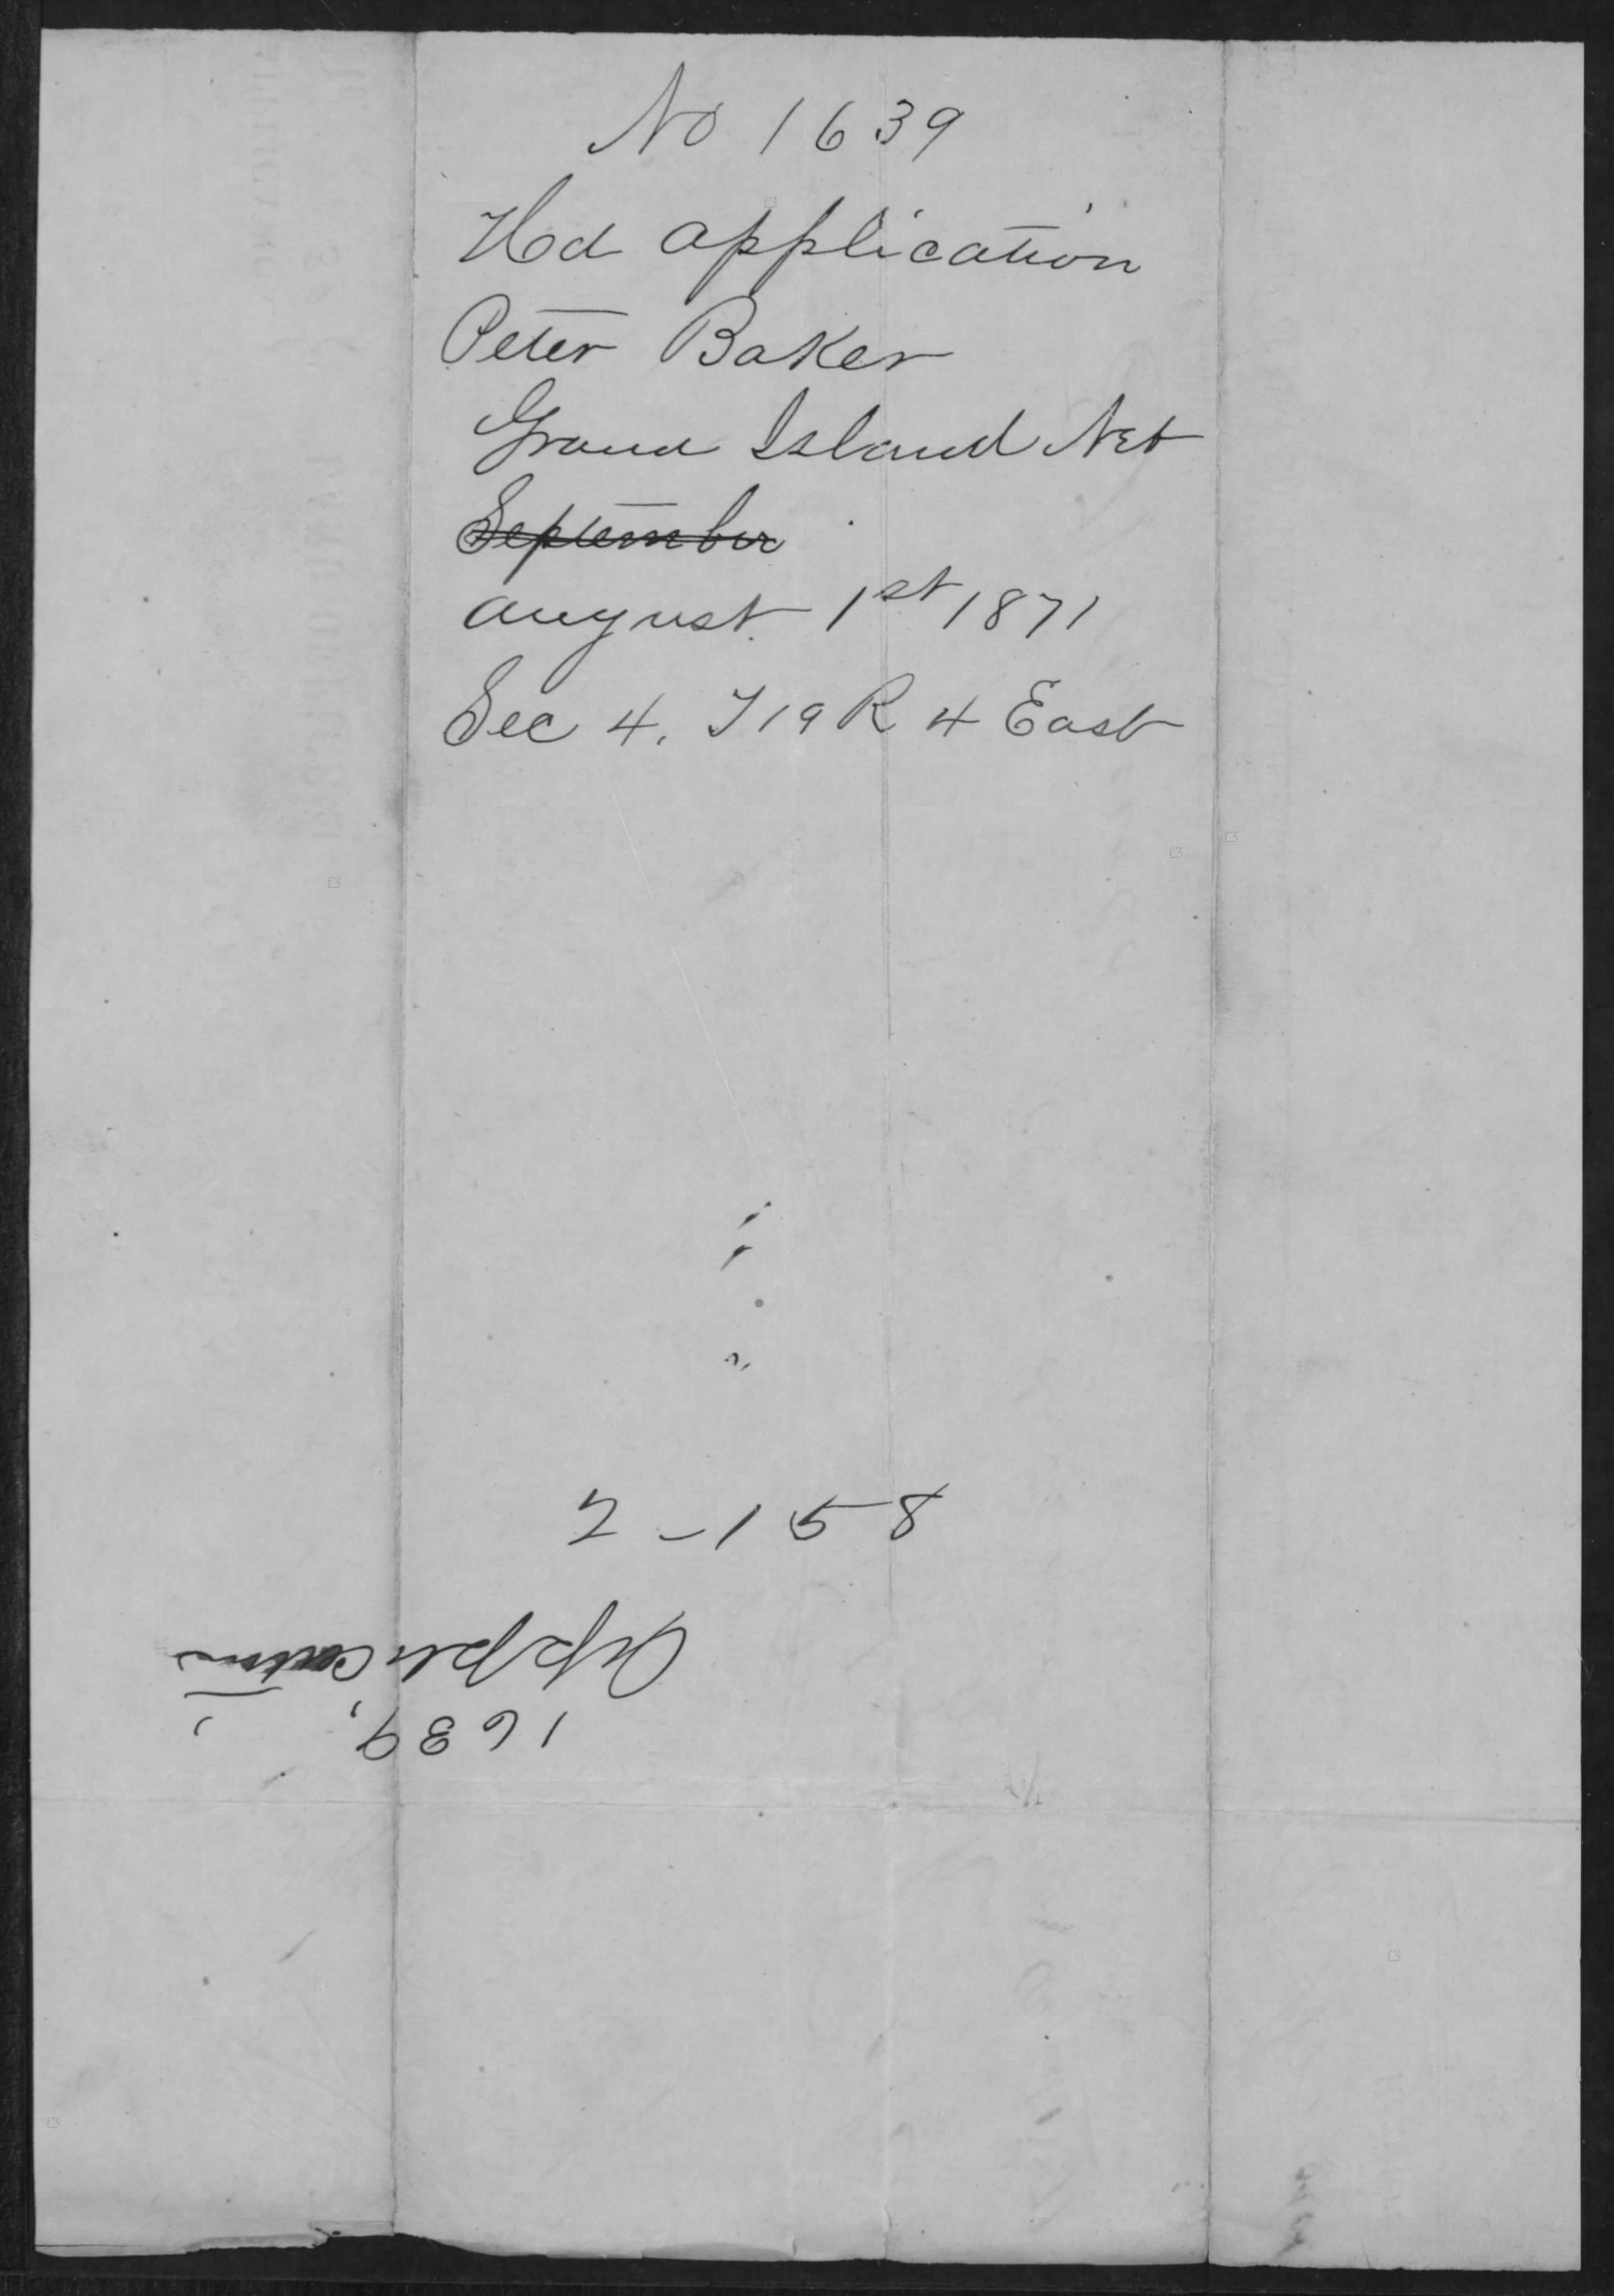 No 1639
Hd application
Peter Baker
Grand Island Neb
September
august 1st 1871
Sec 4. T 19 R 4 East
2-158
Application
1639,